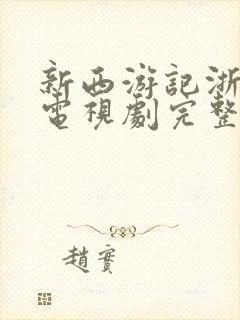 新西游記浙
電視劇完整
趙實